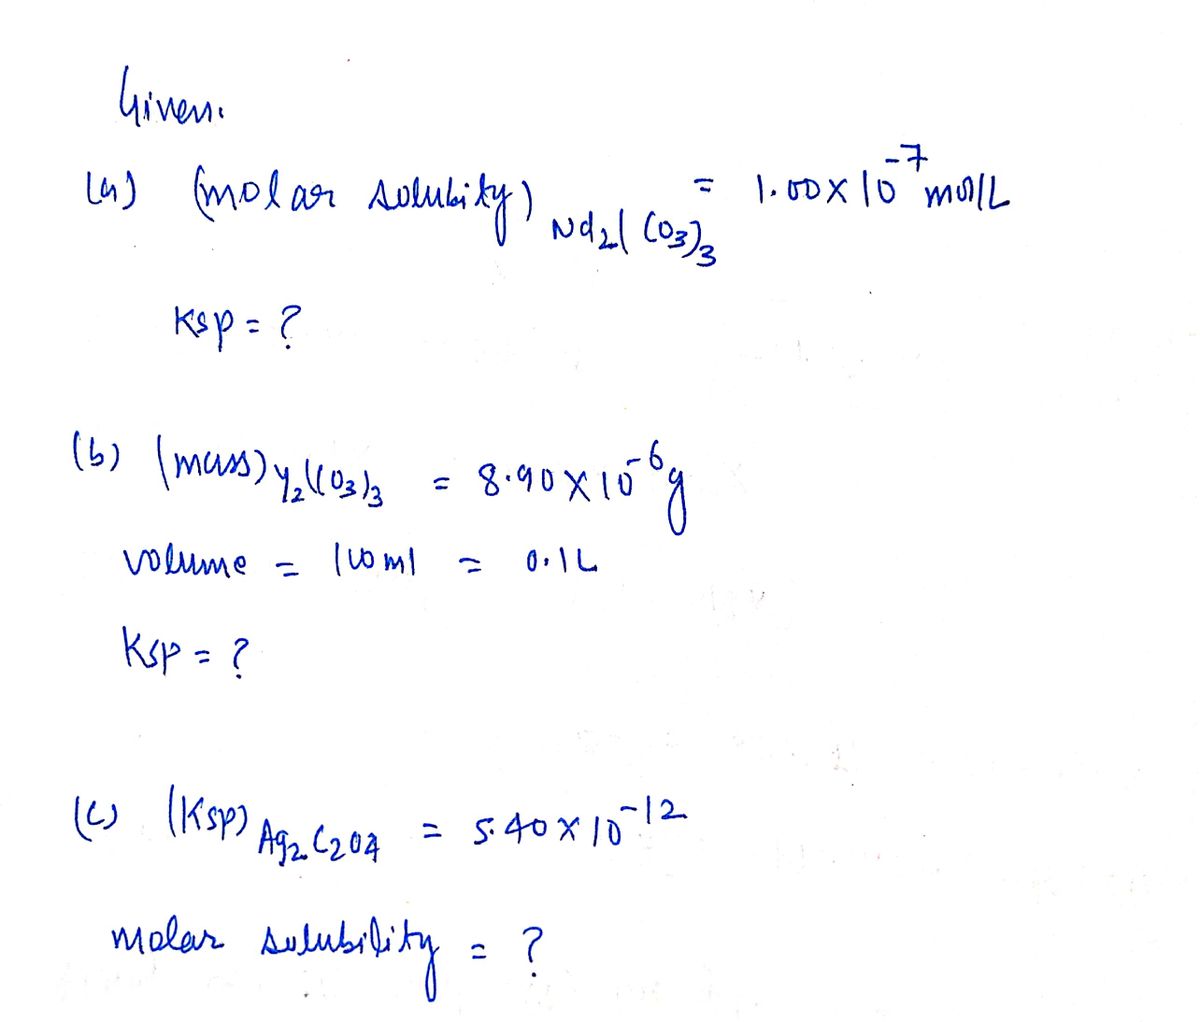 Given:
(a) (molar solubity) Nd2(CO3)3 = 1.00 x 10^-7 mol/L
Ksp = ?
(b) (mass) Y2(CO3)3 = 8.90 x 10^-6 g
volume = 100 ml = 0.1L
Ksp = ?
(c) (Ksp) Ag2C2O4 = 5.40 x 10^-12
molar solubility = ?